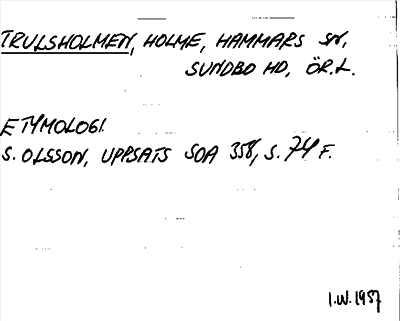 TRULSHOLMEN, HOLME, HAMMARS SN,
SUNDBO HD, ÖR.L.
ETYMOLOGI.
S. OLSSON, UPPSATS SOA 358, S. 74 F.
I.W. 1987